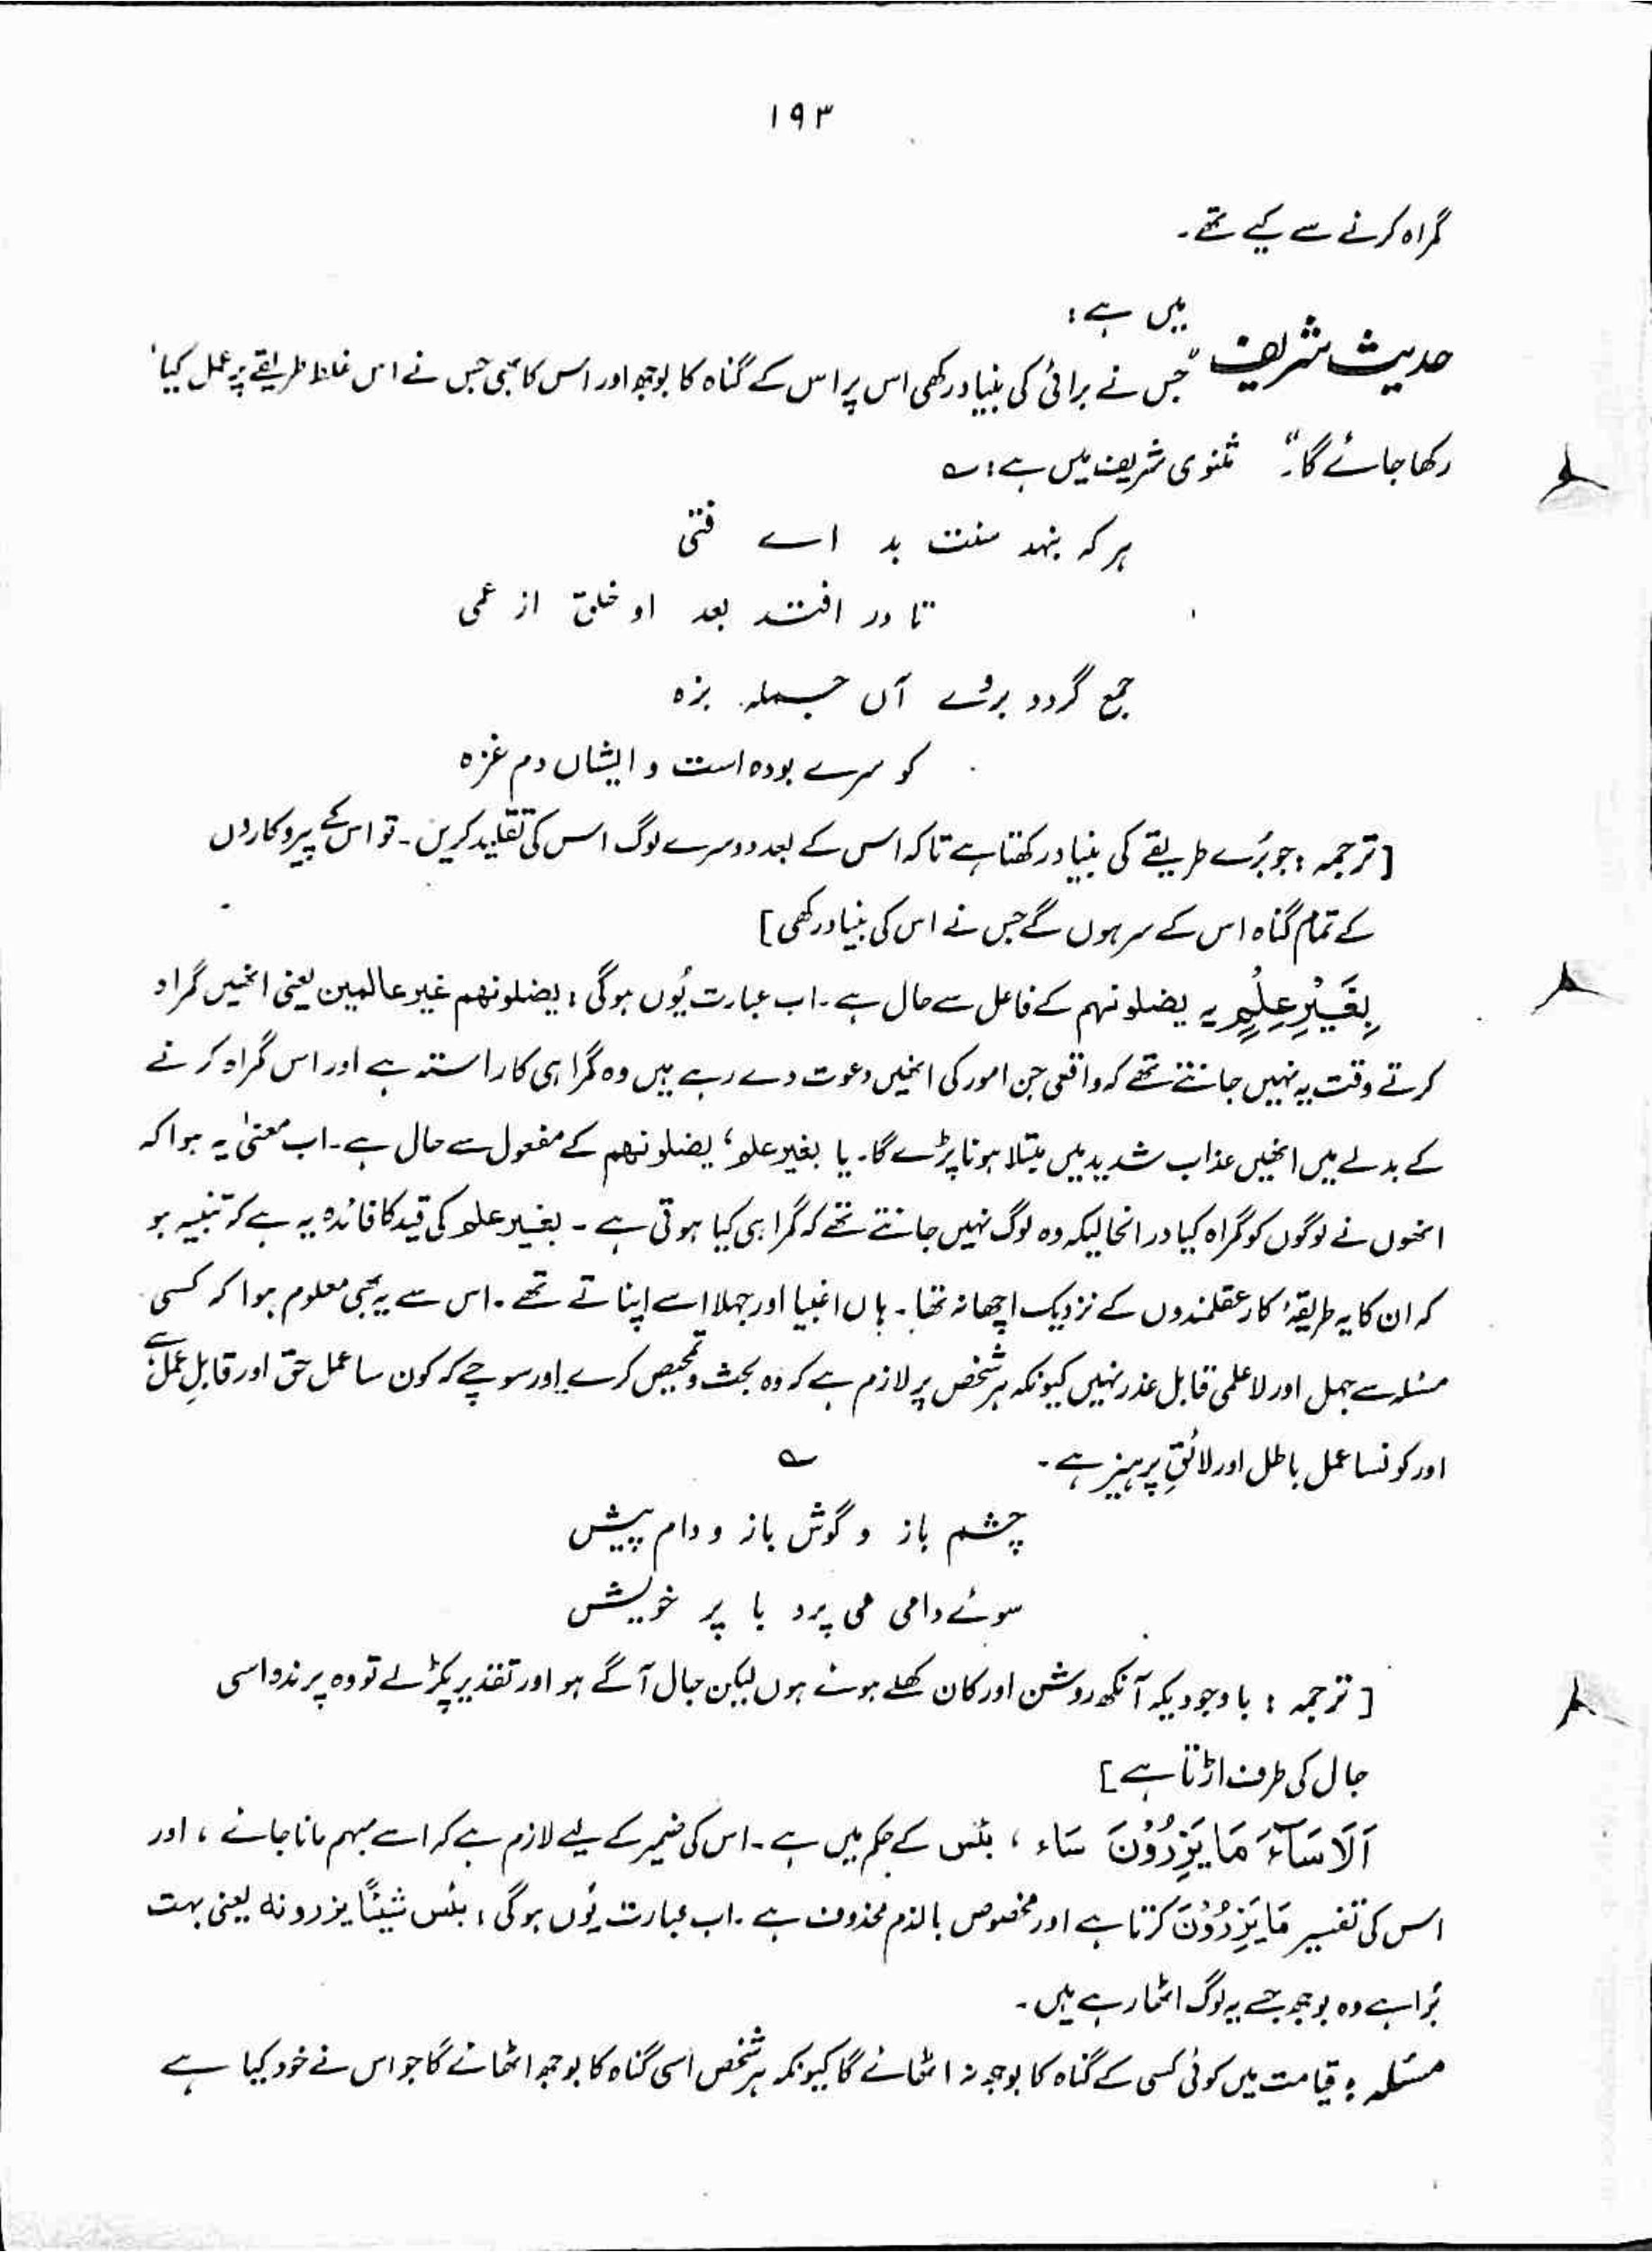 ۱۹۳
گمراہ کرنے سے کیے تھے۔
حدیث شریف میں ہے:
"جس نے برائی کی بنیاد رکھی اس پر اس کے گناہ کا بوجھ اور اس کا بھی جس نے اس غلط طریقے پر عمل کیا'
رکھا جائے گا۔" مثنوی شریف میں ہے: ؎
ہر کہ بنہد سنت بد اے فتیٰ
تا در افتد بعد او خلق از عمی
جمع گردد بر وے آں جملہ بزہ
کو سرے بودہ است و ایشاں دم غزہ
[ترجمہ: جو بُرے طریقے کی بنیاد رکھتا ہے تاکہ اس کے بعد دوسرے لوگ اس کی تقلید کریں۔ تو اس کے پیروکاروں
کے تمام گناہ اس کے سر ہوں گے جس نے اس کی بنیاد رکھی]
بِغَيْرِ عِلْمٍ یہ یضلونہم کے فاعل سے حال ہے۔ اب عبارت یُوں ہوگی: یضلونھم غیر عالمین یعنی انھیں گمراہ
کرتے وقت یہ نہیں جانتے تھے کہ واقعی جن امور کی انھیں دعوت دے رہے ہیں وہ گمراہی کا راستہ ہے اور اس گمراہ کرنے
کے بدلے میں انھیں عذاب شدید میں مبتلا ہونا پڑے گا۔ یا بغیر علم، یضلونھم کے مفعول سے حال ہے۔ اب معنیٰ یہ ہوا کہ
انھوں نے لوگوں کو گمراہ کیا درانحالیکہ وہ لوگ نہیں جانتے تھے کہ گمراہی کیا ہوتی ہے۔ بغیر علم کی قید کا فائدہ یہ ہے کہ تنبیہ ہو
کہ ان کا یہ طریقۂ کار عقلمندوں کے نزدیک اچھا نہ تھا۔ ہاں اغبیا اور جہلا اسے اپناتے تھے۔ اس سے یہ بھی معلوم ہوا کہ کسی
مسئلہ سے جہل اور لاعلمی قابل عذر نہیں کیونکہ ہر شخص پر لازم ہے کہ وہ بحث و تمحیص کرے اور سوچے کہ کون سا عمل حق اور قابلِ عمل ہے
اور کونسا عمل باطل اور لائقِ پرہیز ہے۔ ؎
چشم باز و گوش باز و دام پیش
سوئے دامی می پرد با پر خویش
[ترجمہ: باوجودیکہ آنکھ روشن اور کان کھلے ہوئے ہوں لیکن جال آگے ہو اور تقدیر پکڑ لے تو وہ پرندہ اسی
جال کی طرف اڑتا ہے]
اَلَا سَآءَ مَا يَزِرُوْنَ سَاء، بئس کے حکم میں ہے۔ اس کی ضمیر کے لیے لازم ہے کہ اسے مبہم مانا جائے، اور
اس کی تفسیر مَا يَزِرُوْنَ کرتا ہے اور مخصوص بالذم محذوف ہے۔ اب عبارت یُوں ہوگی: بئس شیئًا یزرونہ یعنی بہت
بُرا ہے وہ بوجھ جسے یہ لوگ اٹھا رہے ہیں۔
مسئلہ: قیامت میں کوئی کسی کے گناہ کا بوجھ نہ اٹھائے گا کیونکہ ہر شخص اسی گناہ کا بوجھ اٹھائے گا جو اس نے خود کیا ہے